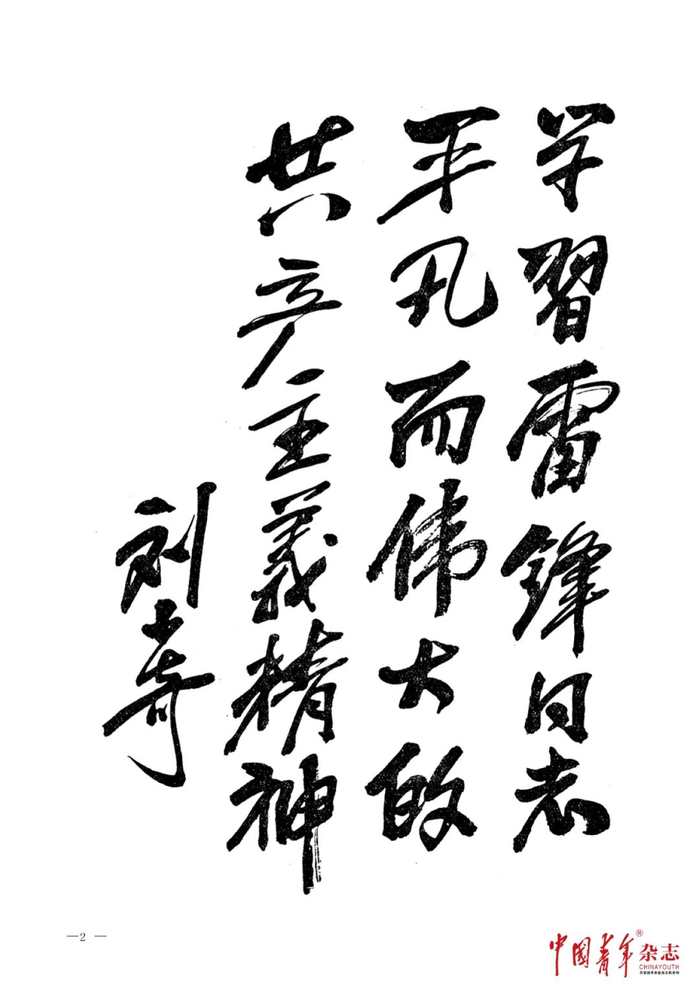 学習雷锋同志
平凡而伟大的
共产主義精神
刘少奇
—2—
中国青年®杂志
CHINAYOUTH